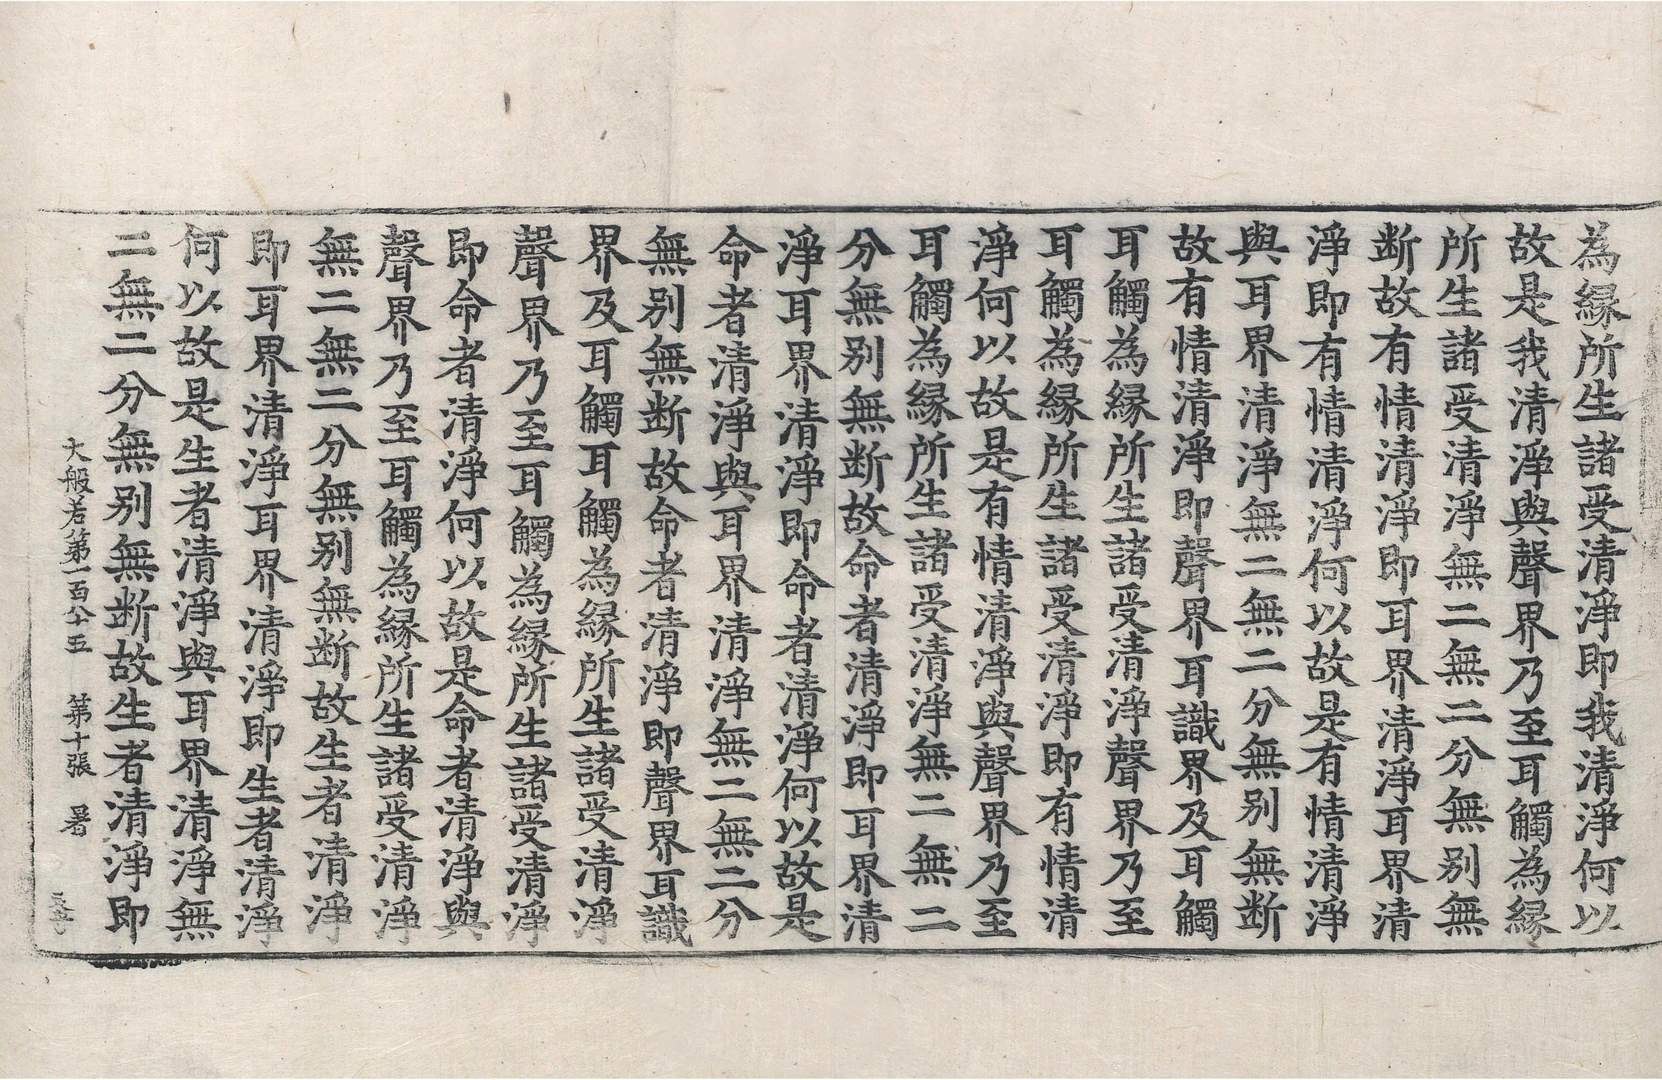 為縁所生諸受清淨即我清淨何以
故是我清淨與聲界乃至耳觸為縁
所生諸受清淨無二無二分無别無
断故有情清淨即耳界清淨耳界清
淨即有情清淨何以故是有情清淨
與耳界清淨無二無二分無别無断
故有情清淨即聲界耳識界及耳觸
耳觸為縁所生諸受清淨聲界乃至
耳觸為縁所生諸受清淨即有情清
淨何以故是有情清淨與聲界乃至
耳觸為縁所生諸受清淨無二無二
分無别無断故命者清淨即耳界清
淨耳界清淨即命者清淨何以故是
命者清淨與耳界清淨無二無二分
無别無断故命者清淨即聲界耳識
界及耳觸耳觸為縁所生諸受清淨
聲界乃至耳觸為縁所生諸受清淨
即命者清淨何以故是命者清淨與
聲界乃至耳觸為縁所生諸受清淨
無二無二分無别無断故生者清淨
即耳界清淨耳界清淨即生者清淨
何以故是生者清淨與耳界清淨無
二無二分無别無断故生者清淨即
大般若第一百八十五 第十張 暑